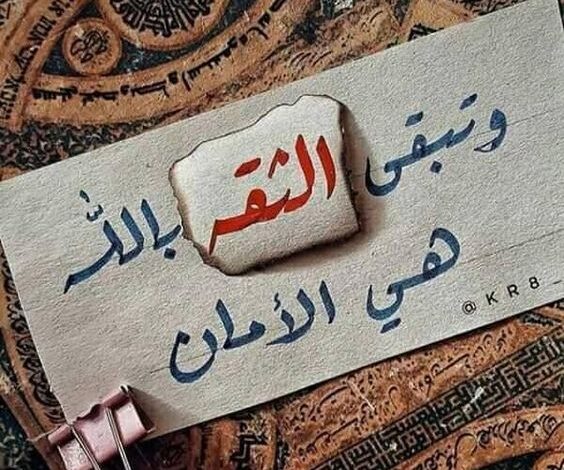 وتبقى الثقه بالله
هي الأمان
@KR8_